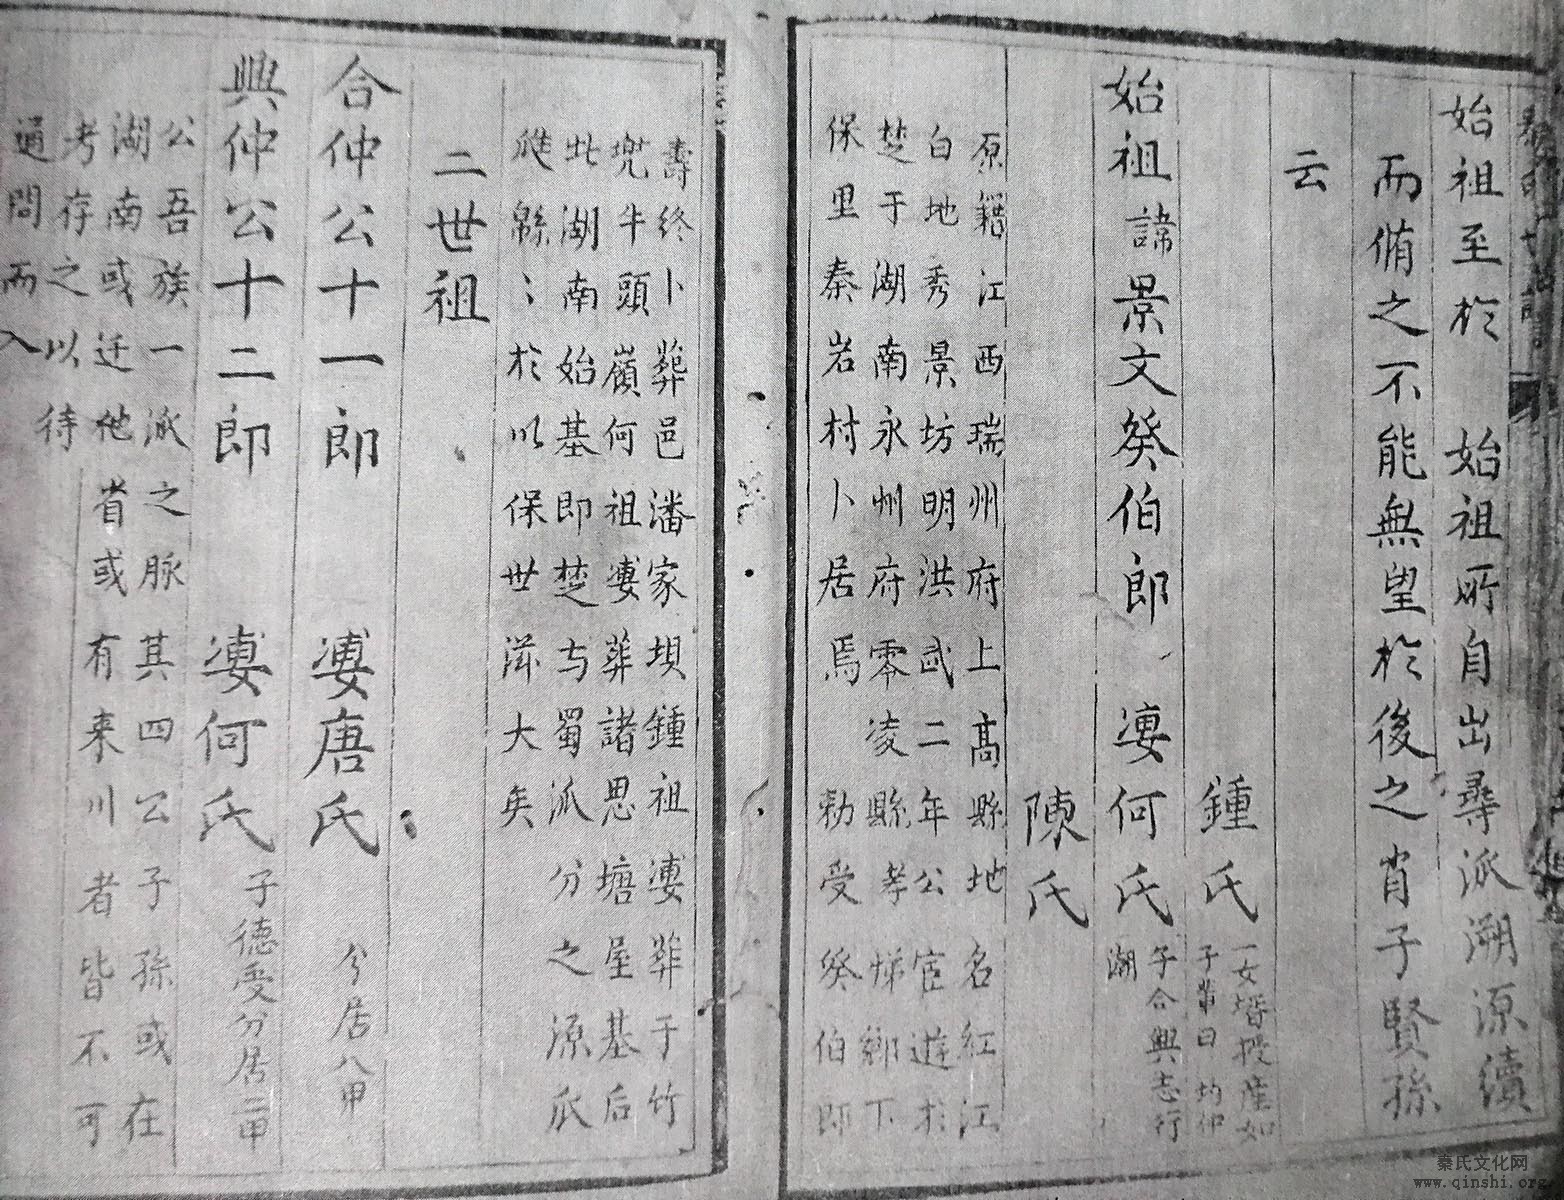 始祖至於　始祖所自出尋派溯源續
而脩之不能無望於後之肖子賢孫
云
鍾氏
一女壻授產如
子輩曰均仲
始祖諱景文癸伯郎　娶何氏
子合興志行
湖
陳氏
原籍江西瑞州府上高縣地名紅江
白地秀景坊明洪武二年公宦遊於
楚于湖南永州府零凌縣孝悌鄉下
保里秦岩村卜居焉　勅受癸伯郎
壽終卜葬邑潘家坝鍾祖妻葬于竹
兜牛頭嶺何祖妻葬諸思塘屋基后
此湖南始基即楚与蜀派分之源瓜
瓞緜〻於以保世滋大矣
二世祖
合仲公十一郎　妻唐氏　分居八甲
興仲公十二郎　妻何氏　子德受分居二甲
公吾族一派之脉其四公子孫或在
湖南或迁他省或有来川者皆不可
考存之以待
通問而入
秦氏文化网
www.qinshi.org